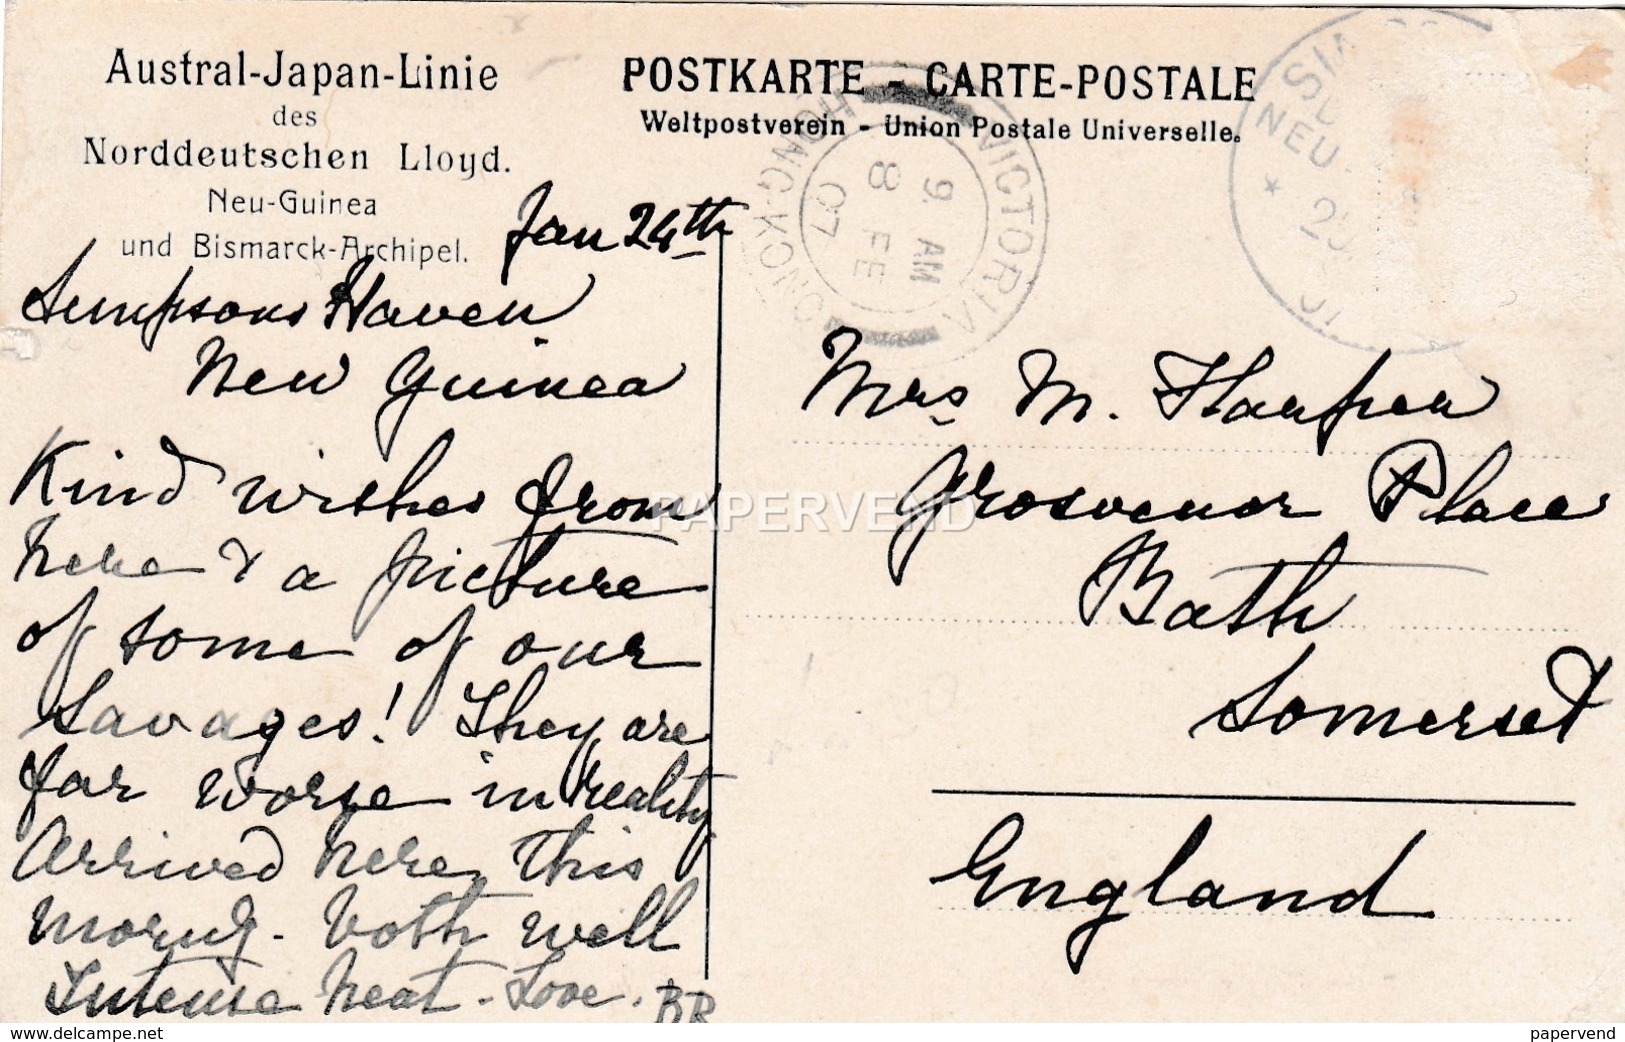 Austral-Japan-Linie
des
Norddeutschen Lloyd.
Neu-Guinea
und Bismarck-Archipel.
POSTKARTE - CARTE-POSTALE
Weltpostverein - Union Postale Universelle.
VICTORIA
HONG-KONG
9. AM
8 FE
07
NEU
Jan 24th
Simpsons Haven
New Guinea
Kind wishes from
here & a picture
of some of our
savages! They are
far worse in reality
Arrived here this
morng. both well
Intense heat. Love.
BR
Mrs M.
Grosvenor Place
Bath
Somerset
England
PAPERVEND
delcampe.net
papervend